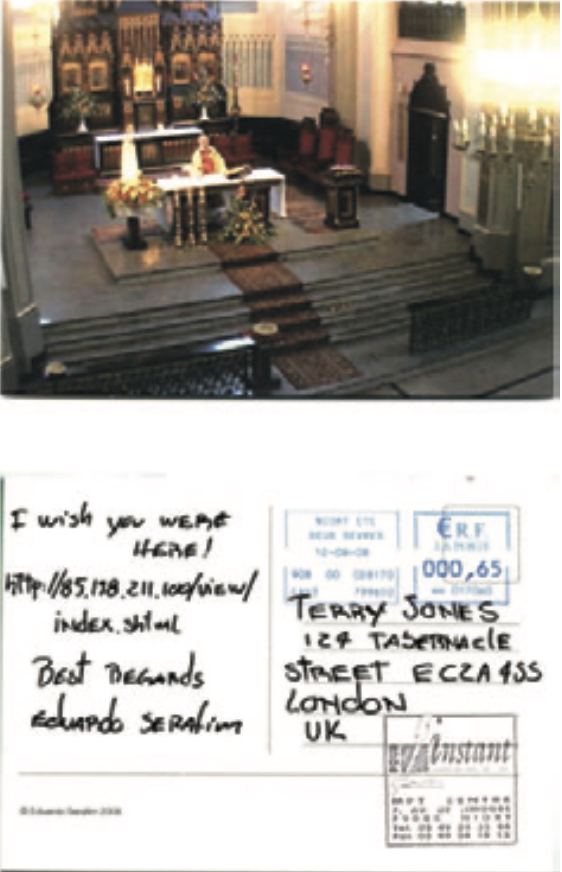 I wish you were
HERE!
http://85.138.211.100/view/
index.shtml
Best Regards
Eduardo Serafim
NIORT CTC
DEUX SEVRES
12-08-08
€ R.F.
LA POSTE
000,65
TERRY JONES
124 TABERNACLE
STREET EC2A 4SS
LONDON
UK
instant
MPT CENTRE
79000 NIORT
© Eduardo Serafim 2008